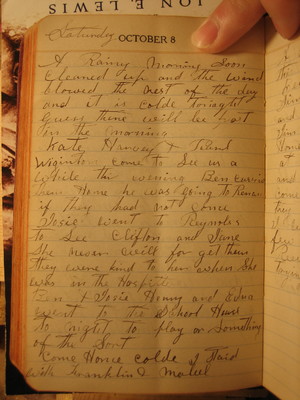 ION E. LEWIS
Saturday OCTOBER 8
A Rainy Morning Soon
Cleaned up and the wind
blowed the rest of the day
and it is colde tonight
guess there will be frost
in the morning
Kate, Harvey &
come to See us a
while this evening Ben
Home he was going to
if they had not come
Josie went to Reynolds
to See Clifton and Jane
She never will for get them
they were kind to her when She
was in the Hospital
Ben & Josie Henry and Edna
went to the School House
to night to play or Something
of the Sort
Come Home colde & Staid
with Franklin &